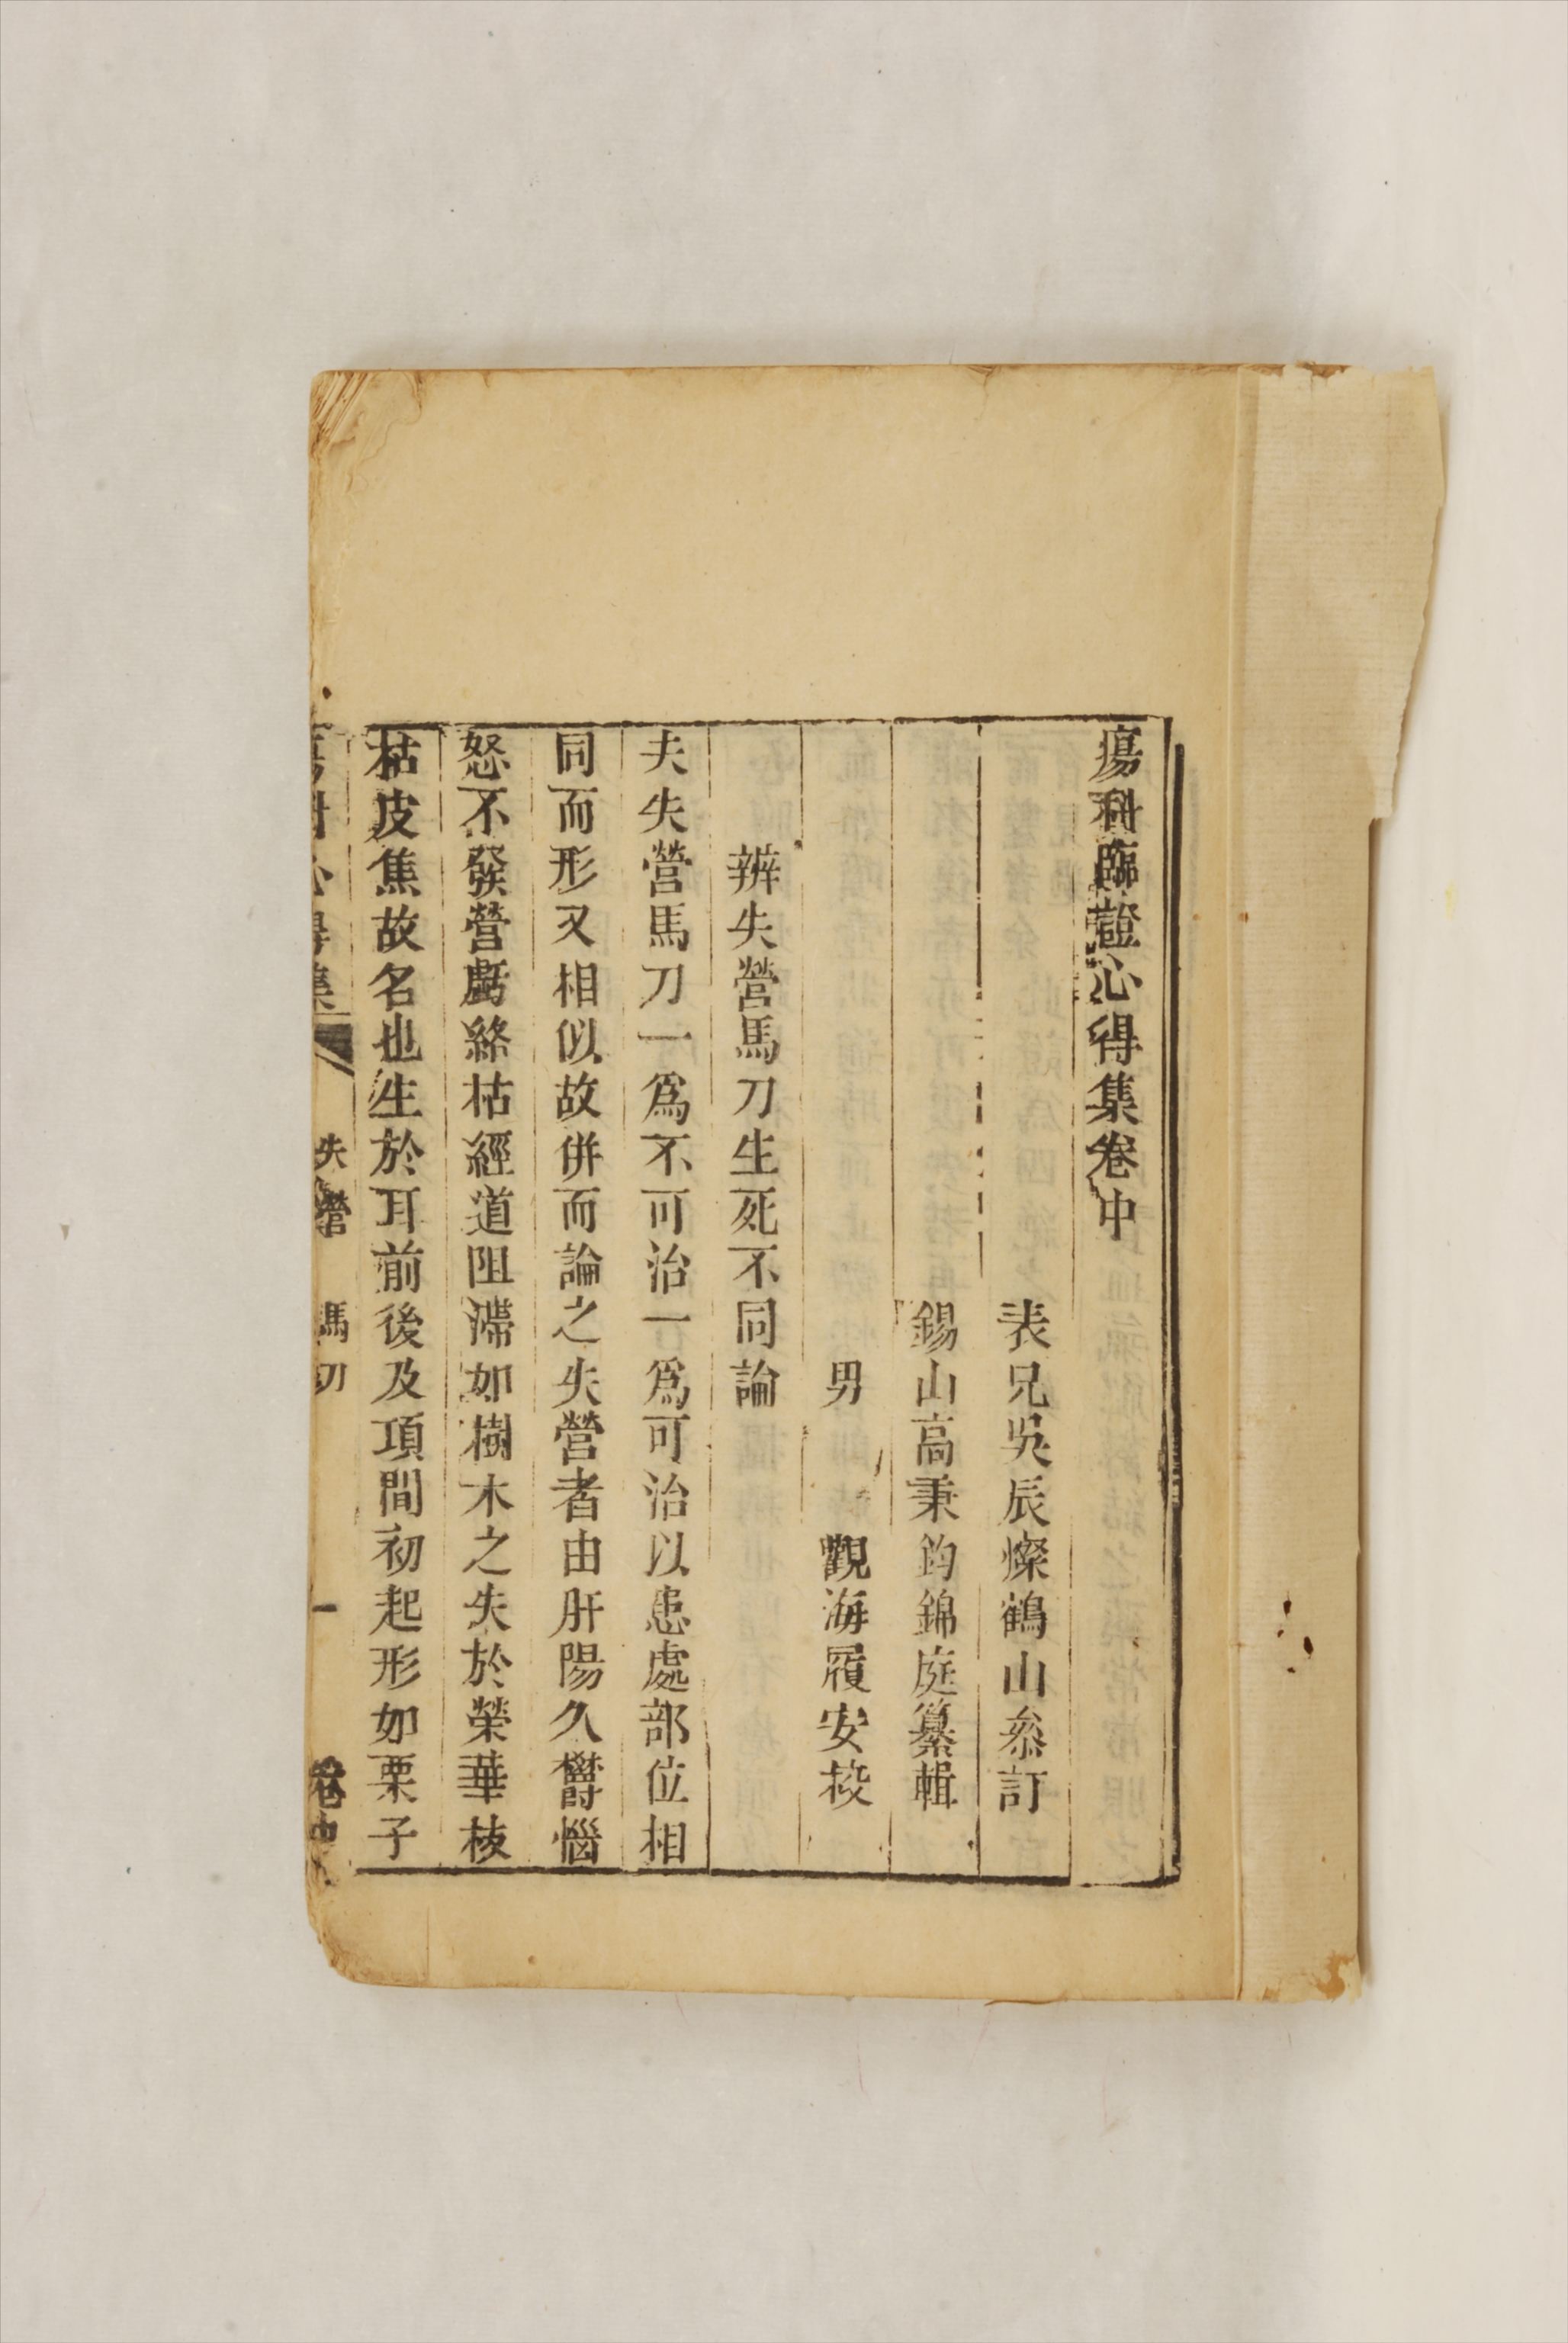 瘍科臨證心得集卷中
表兄吳辰燦鶴山叅訂
錫山高秉鈞錦庭纂輯
男 觀海履安挍
辨失營馬刀生死不同論
夫失營馬刀一爲不可治一爲可治以患處部位相
同而形又相似故併而論之失營者由肝陽久鬱惱
怒不發營虧絡枯經道阻滯如樹木之失於榮華枝
枯皮焦故名也生於耳前後及項間初起形如栗子
失營 馬刀 一 卷中